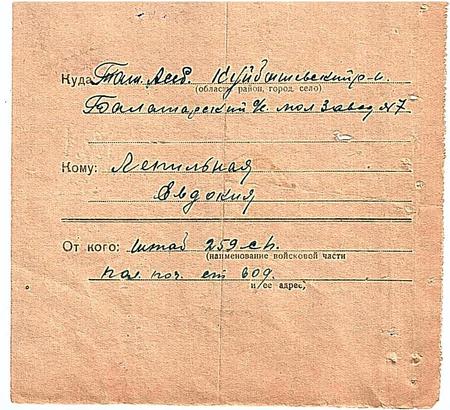 Куда Тат. Асср. Куйбышевский р-н.
(область, район, город, село)
мол завод №7
Кому:
Евдокия
От кого: штаб 259 сп.
(наименование войсковой части
пол. поч. ст 609.
и ее адрес)